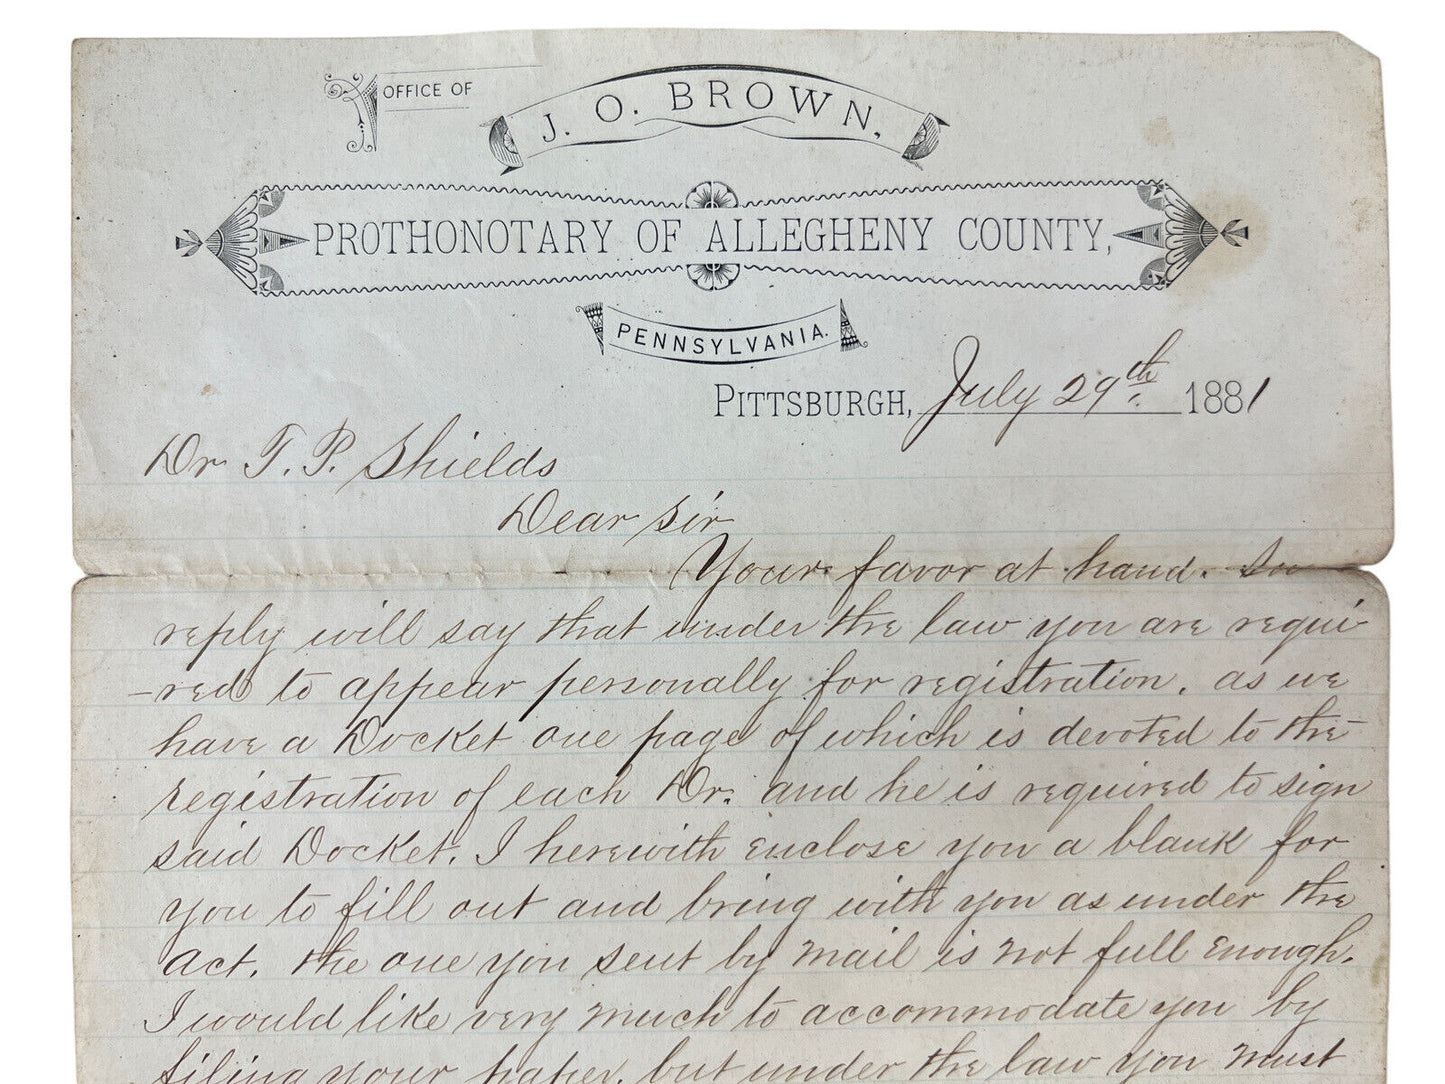 OFFICE OF
J. O. BROWN,
PROTHONOTARY OF ALLEGHENY COUNTY,
PENNSYLVANIA.
PITTSBURGH, July 29th. 1881
Dr T. P. Shields
Dear Sir
Your favor at hand. In
reply will say that under the law you are requi-
-red to appear personally for registration. as we
have a Docket one page of which is devoted to the
registration of each Dr. and he is required to sign
said Docket. I herewith enclose you a blank for
you to fill out and bring with you as under the
act. the one you sent by mail is not full enough.
I would like very much to accommodate you by
filing your paper, but under the law you must